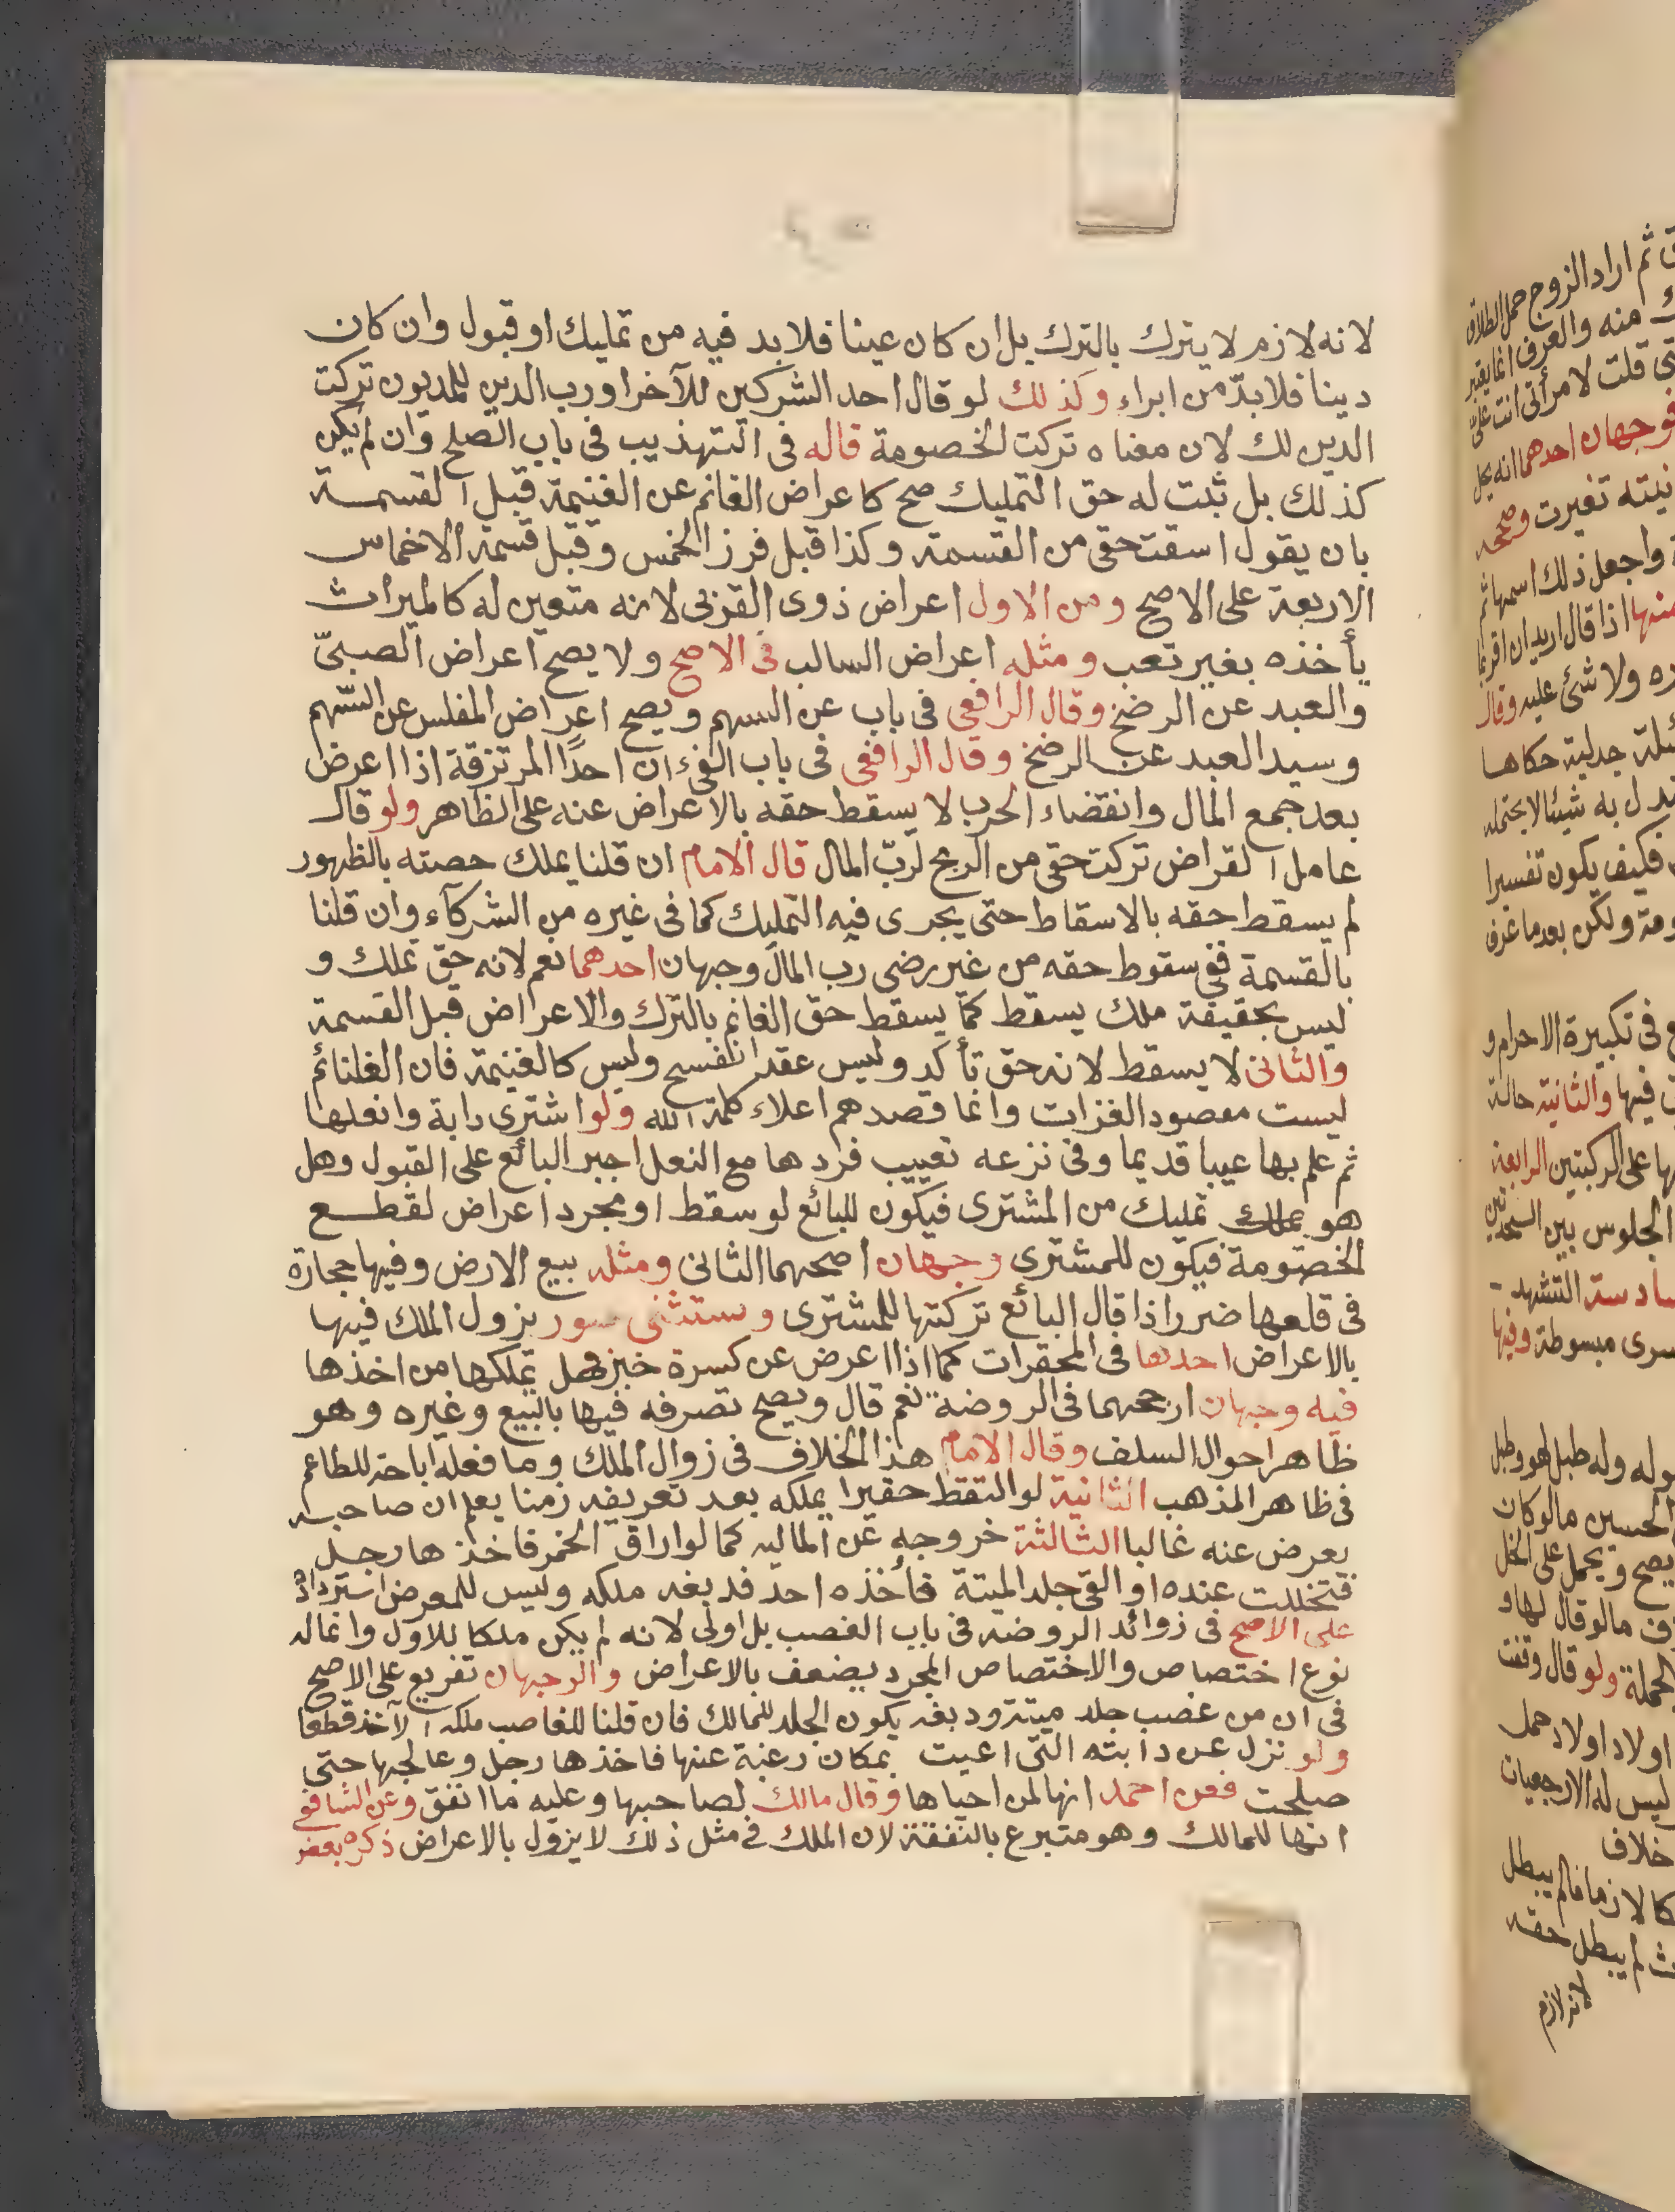 لانه لازم لا يترك بالترك بل ان كان عينا فلابد فيه من تمليك او قبول وان كان
دينا فلابدّ من ابراء وكذلك لو قال احد الشركين للآخر او رب الدين للمديون تركت
الدين لك لان معناه تركت الخصومة قاله فى التهذيب فى باب الصلح وان لم يكن
كذلك بل ثبت له حق التمليك صح كاعراض الغانم عن الغنيمة قبل القسمة
بان يقول اسقت حقى من القسمة وكذا قبل فرز الخمس وقبل قسمة الاخماس
الاربعة على الاصح ومن الاول اعراض ذوى القربى لانه متعين له كالميراث
يأخذه بغير تعب ومثله اعراض السالب فى الاصح ولا يصح اعراض الصبىّ
والعبد عن الرضخ وقال الرافعى فى باب عن السهم ويصح اعراض المفلس عن السّهم
وسيد العبد عن الرضخ وقال الرافعى فى باب الفئ ان احدًا المرتزقة اذا اعرض
بعد جمع المال وانقضاء الحرب لا يسقط حقه بالاعراض عنه على الظاهر ولو قال
عامل القراض تركت حقى من الربح لربّ المال قال الامام ان قلنا يملك حصته بالظهور
لم يسقط حقه بالاسقاط حتى يجرى فيه التمليك كما فى غيره من الشركآء وان قلنا
بالقسمة ففى سقوط حقه من غير رضى رب المال وجهان احدهما نعم لانه حق تملك و
ليس بحقيقة ملك يسقط كما يسقط حق الغانم بالترك والاعراض قبل القسمة
والثانى لا يسقط لانه حق تأكد وليس عقد انفسح وليس كالغنيمة فان الغلنائم
ليست معصود الغزات وانما قصدهم اعلاء كلمة الله ولو اشترى دابة وانعلها
ثم علم بها عيبا قديما وفى نزعه تعييب فردها مع النعل اجبر البائع على القبول وهل
هو تمليك من المشترى فيكون للبائع لو سقط او مجرد اعراض لقطع
الخصتومة فيكون للمشترى وجهان اصحهما الثانى ومثله بيع الارض وفيها حجارة
فى قلعها ضرر اذا قال البائع تركتها للمشترى وستثنى صور يزول الملك فيها
بالاعراض احدها فى المحقرات كما اذا اعرض عن كسرة خبز وهل يتملكها من اخذها
فيه وجهان ارجحهما فى الروضة نعم قال ويصح تصرفه فيها بالبيع وغيره وهو
ظاهر احوال السلف وقال الامام هذا الخلاف فى زوال الملك وما فعله اباحة للطاعم
فى ظاهر المذهب الثانية لو التقط حقيرا يملكه بعد تعريفه زمنا يعلم ان صاحبه
يعرض عنه غالبا الثالثة خروجه عن المالية كما لو اراق الخمر فاخذها رجل
فتخللت عنده او القى جلد الميتة فأخذه احد فدبغه ملكه وليس للمعرض استرداده
على الاصح فى زوائد الروضة فى باب الغصب بل اولى لانه لم يكن ملكا للاول وانما له
نوع اختصاص والاختصاص المجرد يضعف بالاعراض والوجهان تفريع على الاصح
فى ان من غصب جلد ميتة ودبغه يكون الجلد للمالك فان قلنا للغاصب ملكه الآخذ قطعا
ولو نزل عن دابته التى اعيت بمكان رغبة عنها فاخذها رجل وعالجها حتى
صلحت فعن احمد انها لمن احياها وقال مالك لصاحبها وعليه ما انفق وعن الشافعى
انها للمالك وهو متبرع بالنفقة لان الملك فى مثل ذلك لا يزول بالاعراض ذكره بعض